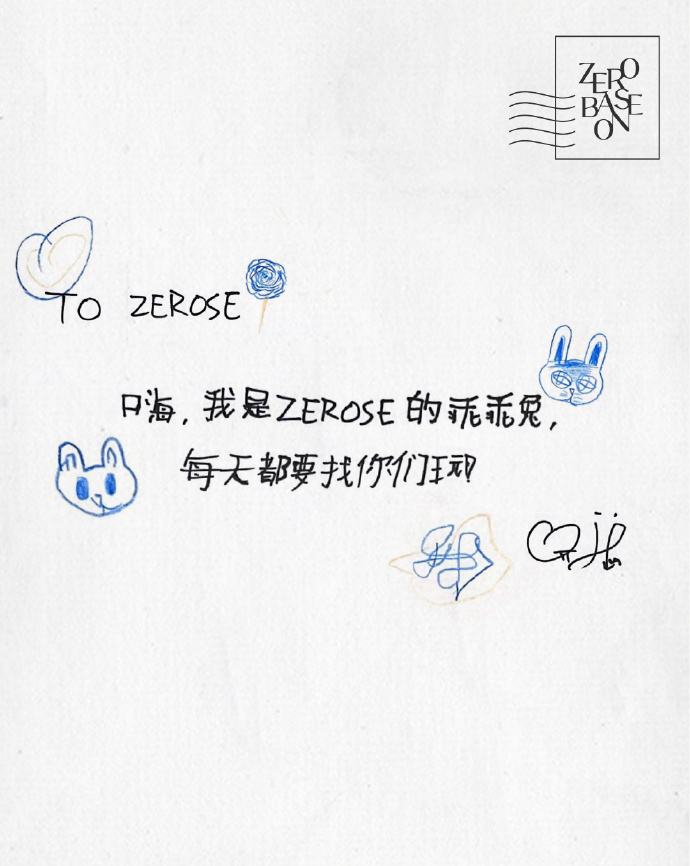 ZERO
BASE
ON
TO ZEROSE
口嗨，我是ZEROSE的乖乖兔，
每天都要找你们玩